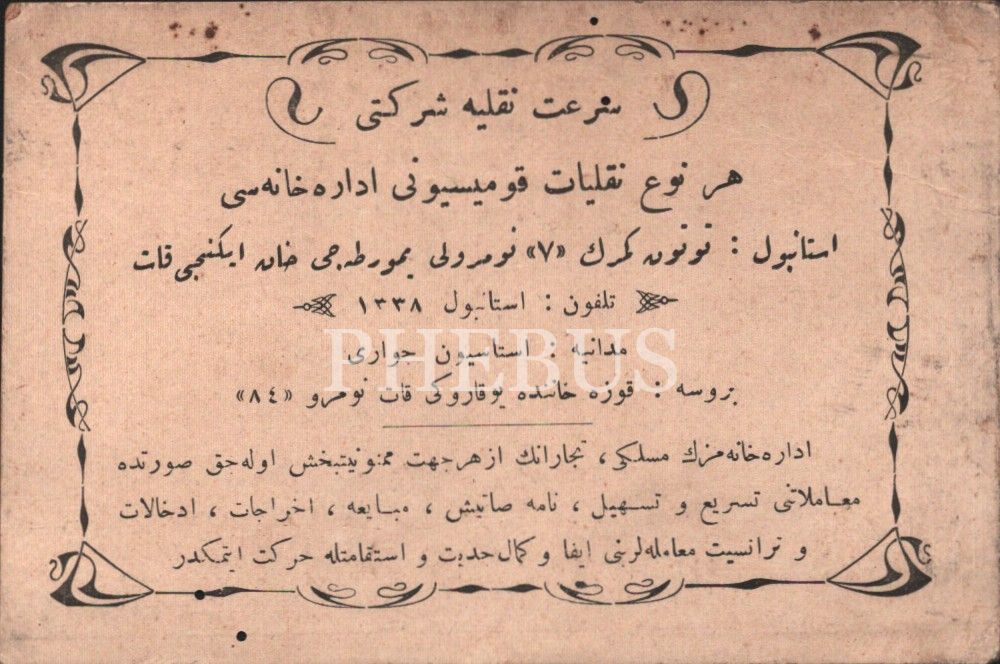 سرعت نقلیه شرکتی
هر نوع نقلیات قومیسیونی اداره خانه‌سی
استانبول : توتون کمرك «۷» نومرولی یمورطه‌جی خان ایکنجی قات
تلفون : استانبول ۱۳۳۸
مدانیه : استاسیون جواری
PHEBUS
بروسه : قوزه خاننده یوقاروکی قات نومرو «۸٤»
اداره خانه‌مزك مسلکی ، تجارانك از هر جهت ممنونیتبخش اوله‌جق صورتده
معاملاتنی تسریع و تسهیل ، نامه صاتیش ، مبایعه ، اخراجات ، ادخالات
و ترانسیت معامله‌لرینی ایفا و کمال جدیت و استقامتله حرکت ایتمکدر